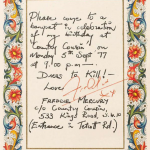 Please come to a
banquet in celebration
of my birthday at
Country Cousin on
Monday 5th Sept '77
at 9.00 p.m —
Dress to Kill! —
Love
FARROKH MERCURY
c/o Country Cousin
533 Kings Road, S.W.10
(Entrance in Tetcott Rd.)